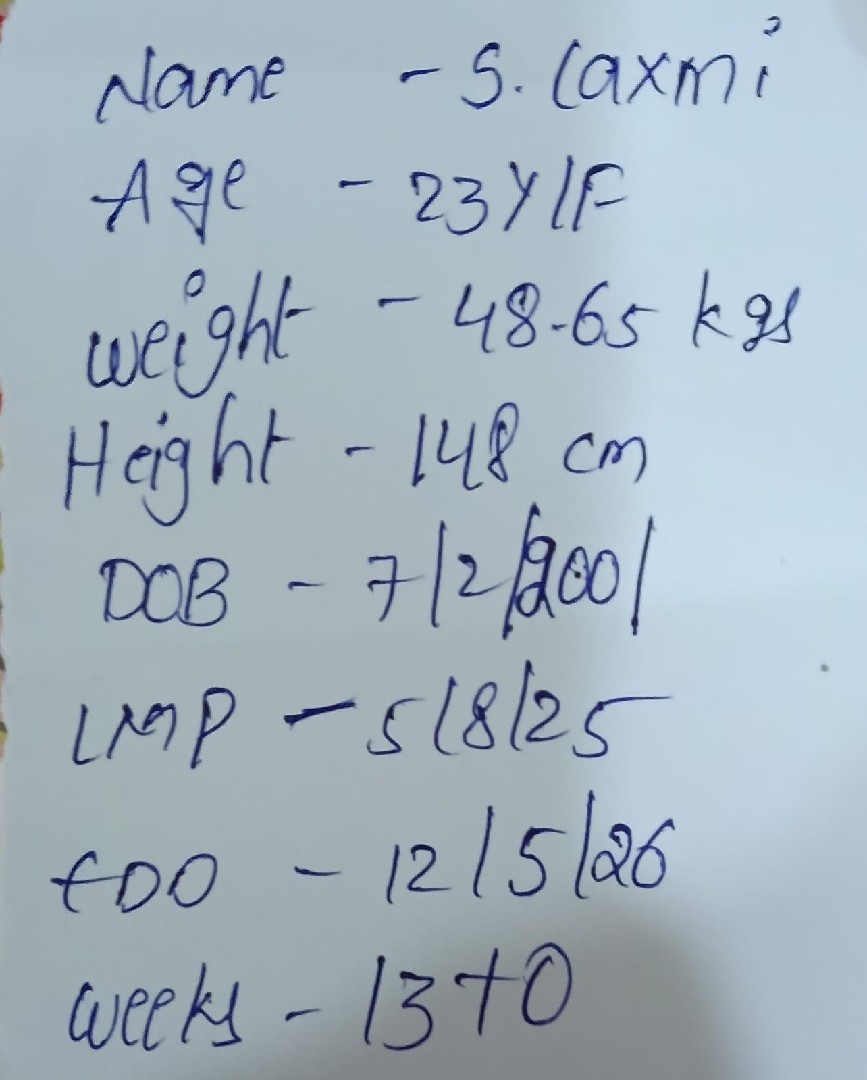 Name - S. Laxmi
Age - 23Y/F
weight - 48.65 kgs
Height - 148 cm
DOB - 7/2/2001
LMP - 5/8/25
EDO - 12/5/26
weeks - 13+0